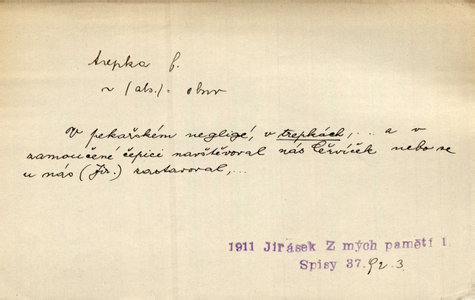 trepka f.
~ (abs.) = obuv
V pekařském negligé, v trepkách, ... a v
zamoučené čepici navštěvoval nás Červíček nebo se
u nás (Jir.) zastavoval, ...
1911 Jirásek Z mých pamětí I
Spisy 37. 92. 3